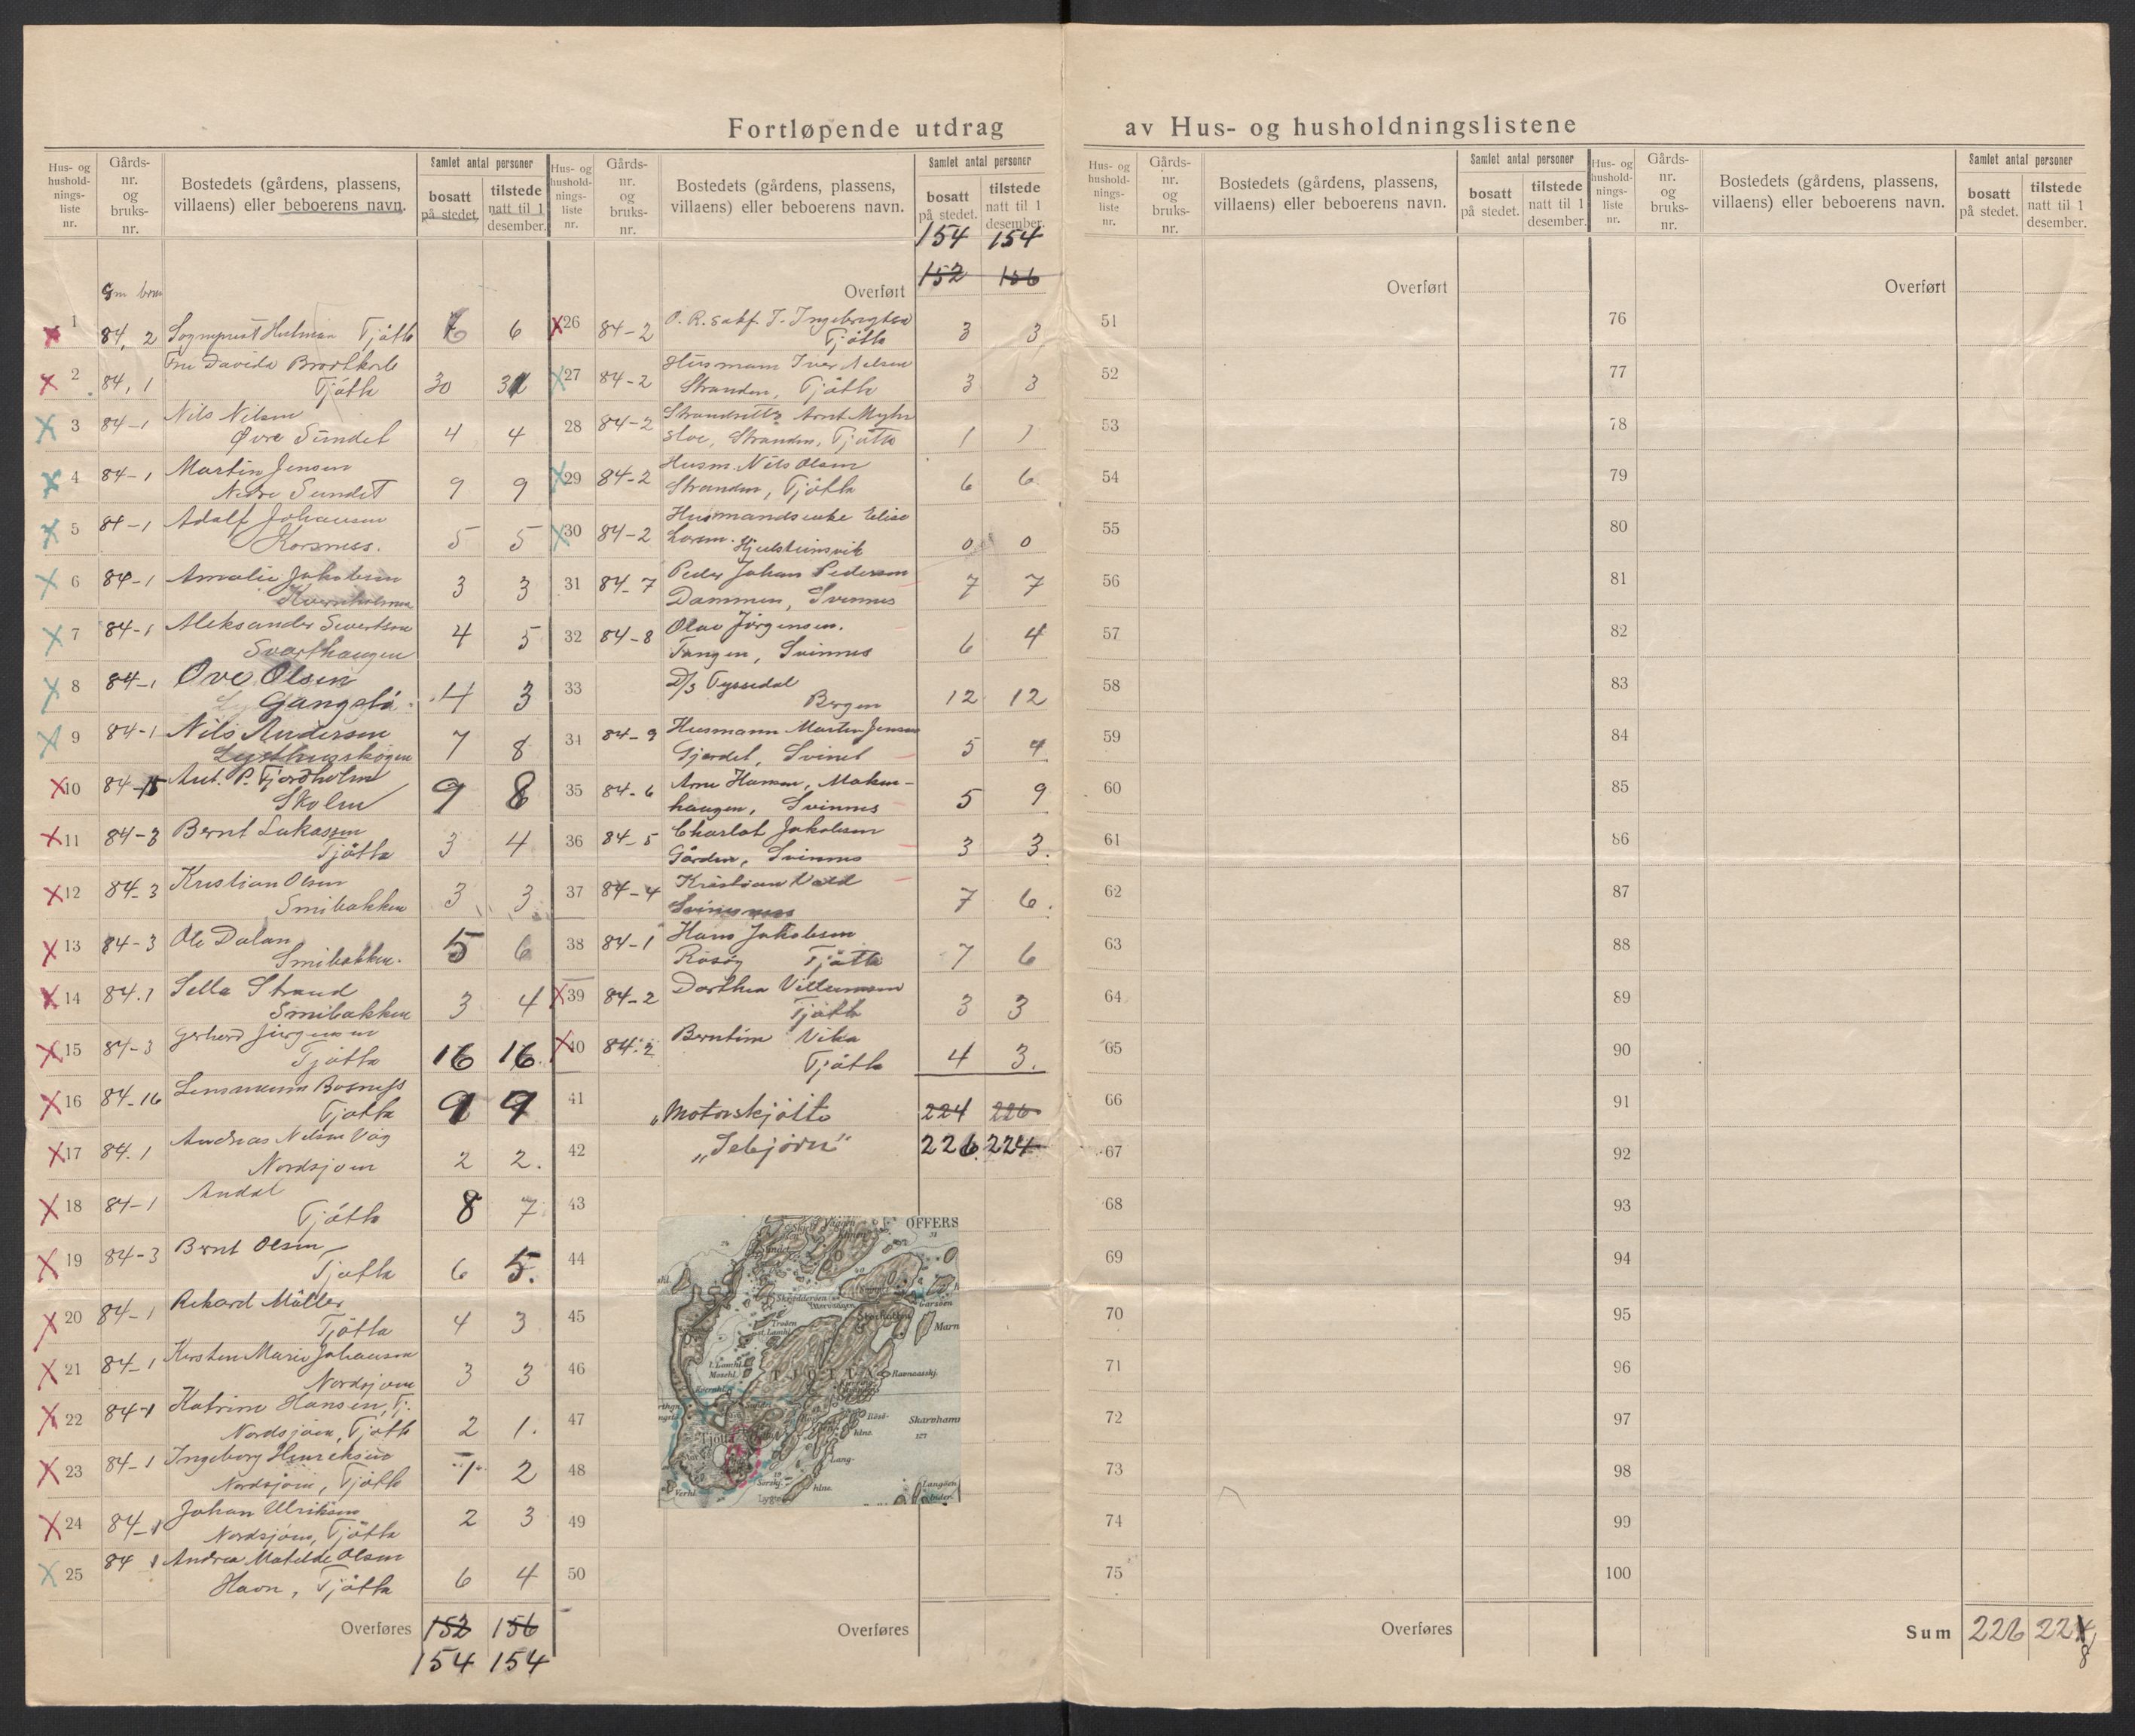 Fortløpende utdrag av Hus- og husholdningslistene
Hus- og hushold-nings-liste nr.
Gårds-nr. og bruks-nr.
Bostedets (gårdens, plassens, villaens) eller beboerens navn.
Samlet antal personer
bosatt på stedet.
tilstede natt til 1 desember.
Gm brm
1 84, 2 Sogneprest Tjøtta 6 6
2 84, 1 Fru Davida Brodtkorb
Tjøtta 30 31
3 84-1 Nils Nilsen
Øvre Sundet 4 4
4 84-1 Martin Jensen
Nedre Sundet 9 9
5 84-1 Adolf Johansen
Korsness. 5 5
6 84-1 Amalie Jakobsen
Kvernholmen 3 3
7 84-1 Aleksander Sivertsen
Svarthaugen 4 5
8 84-1 Ove Olsen
Gangslå 4 3
9 84-1 Nils Andersen
Lysthusskogen 7 8
10 84-15 Ant. P. Fjordholm
Skolen 9 8
11 84-3 Bernt Lukassen
Tjøtta 3 4
12 84-3 Kristian Olsen
Smibakken 3 3
13 84-3 Ole Dalan
Smibakken. 5 6
14 84.1 Sella Strand
Smibakken 3 4
15 84-3 Gerhard Jørgensen
Tjøtta 16 16.
16 84-16 Lensmann Bosness
Tjøtta 9 9
17 84.1 Andreas Nilsen Våg
Nordsjøen 2 2.
18 84-1 Andal
Tjøtta 8 7
19 84-3 Bernt Olsen
Tjøtta 6 5.
20 84-1 Rikard Müller
Tjøtta 4 3
21 84-1 Kirsten Marie Johansen
Nordsjøen 3 3
22 84-1 Katrine Hansen, T.
Nordsjøen, Tjøtta 2 1.
23 84-1 Ingeborg Henriksen
Nordsjøen, Tjøtta 1 2
24 84-1 Johan Ulriksen
Nordsjøen, Tjøtta 2 3
25 84 1 Andrea Matilde Olsen
Havn, Tjøtta 6 4
Overføres 152 156
154 154
Hus- og hushold-nings-liste nr.
Gårds-nr. og bruks-nr.
Bostedets (gårdens, plassens, villaens) eller beboerens navn.
Samlet antal personer
bosatt på stedet.
tilstede natt til 1 desember.
154 154
Overført 152 156
26 84-2 O. R. sakf. J. Ingebrigtsen
Tjøtta 3 3
27 84-2 Husmann Iver Nilsen
Stranden, Tjøtta 3 3
28 84-2 Strandsitter Arnt Myhr
Stranden, Tjøtta 1 1
29 84-2 Husm. Nils Olsen
Stranden, Tjøtta 6 6
30 84-2 Husmandsenke Elise
Larsen. Hjelsteinsvik 0 0
31 84-7 Peder Johan Pedersen
Dammen, Svinnes 7 7
32 84-8 Olav Jørgensen.
Tangen, Svinnes 6 4
33 D/S Tyssedal
Bergen 12 12
34 84-9 Husmann Martin Jensen
Gjerdet, Svines 5 4
35 84-6 Arne Hansen,
haugen, Svinnes 5 9
36 84-5 Charlot Jakobsen
Gården, Svinnes 3 3.
37 84-4 Kristian Vold
Svinesness 7 6.
38 84-1 Hans Jakobsen
Rosøy Tjøtta 7 6
39 84-2 Dorthea Villumsen
Tjøtta 3 3
40 84.2 Berntine Vika
Tjøtta 4 3.
41 "Motorskjøite 224 226
42 "Isbjørn" 226 224
43
44
45
46
47
48
49
50
OFFERS
Skjeldderøen
Trøøen
TJOTTA
Ravnaasskj.
Marn
Skarvhamn
Rösö-
hlne.
Tjötta
Lang-
hlne.
Langöen
Verhl.
Overføres
Hus- og hushold-nings-liste nr.
Gårds-nr. og bruks-nr.
Bostedets (gårdens, plassens, villaens) eller beboerens navn.
Samlet antal personer
bosatt på stedet.
tilstede natt til 1 desember.
Overført
51
52
53
54
55
56
57
58
59
60
61
62
63
64
65
66
67
68
69
70
71
72
73
74
75
Overføres
Hus- og hushold-nings-liste nr.
Gårds-nr. og bruks-nr.
Bostedets (gårdens, plassens, villaens) eller beboerens navn.
Samlet antal personer
bosatt på stedet.
tilstede natt til 1 desember.
Overført
76
77
78
79
80
81
82
83
84
85
86
87
88
89
90
91
92
93
94
95
96
97
98
99
100
Sum 226 224
8